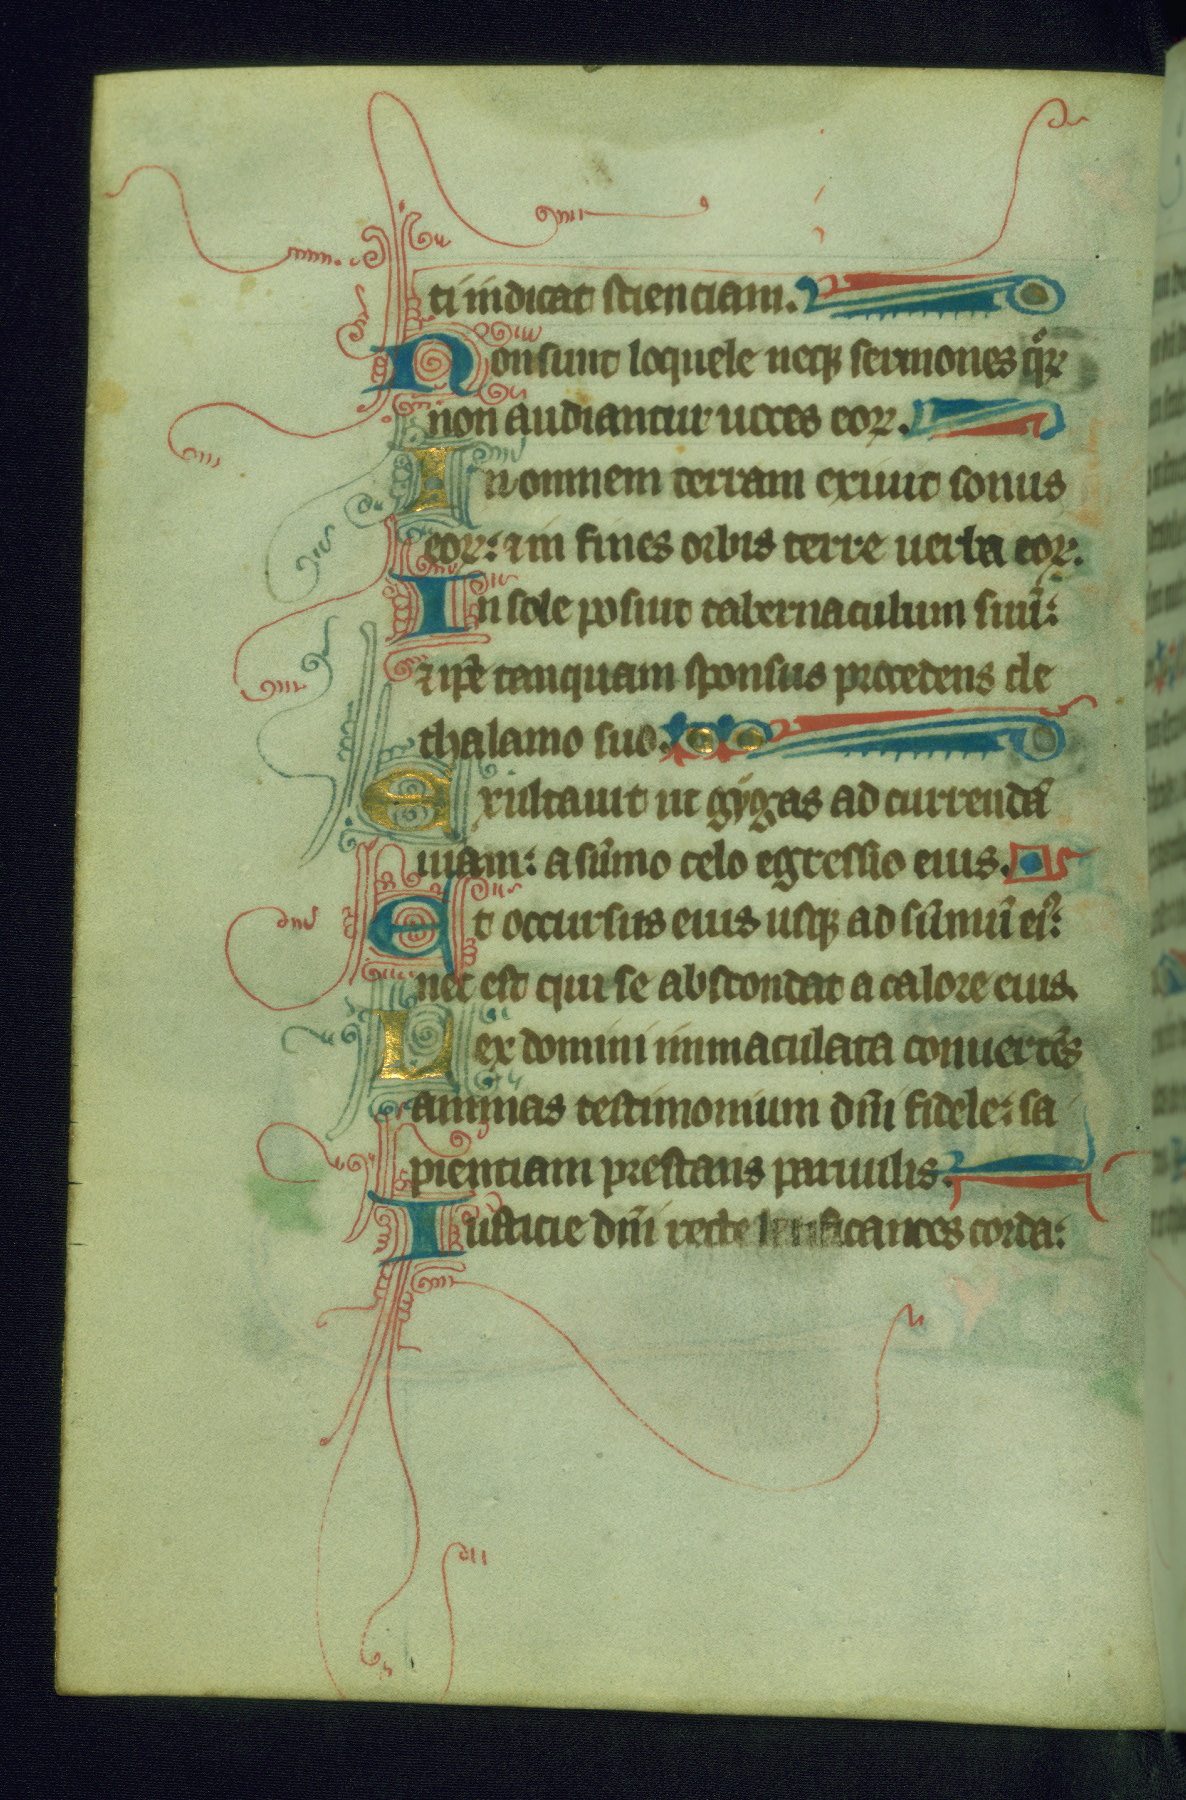 ti indicat scienciam.
Non sunt loquele neqꝫ sermones qͦꝝ
non audiantur uoces eoꝝ.
In omnem terram exiuit sonus
eoꝝ: ⁊ in fines orbis terre uerba eoꝝ.
In sole posuit tabernaculum suū:
⁊ ip̄e tanquam sponsus procedens de
thalamo suo.
Exultauit ut gygas ad currendā
uiam: a sūmo celo egressio eius.
Et occursus eius usqꝫ ad sūmū eiꝰ:
nec est qui se abscondat a calore eius.
Lex domini immaculata conuertēs
animas testimonium dn̄i fidele: sa
pientiam prestans paruulis.
Iusticie dn̄i recte letificantes corda: